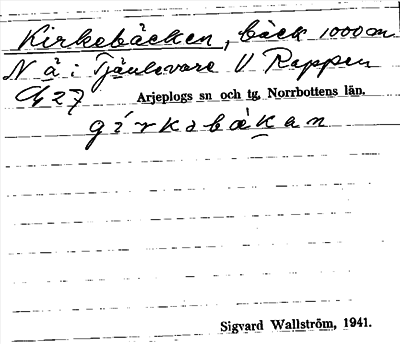 Kirkebäcken, bäck 1000 m
N å i Tjäulevare V Rappen
27 Arjeplogs sn och tg, Norrbottens län.
gírkəbäkan
Sigvard Wallström, 1941.